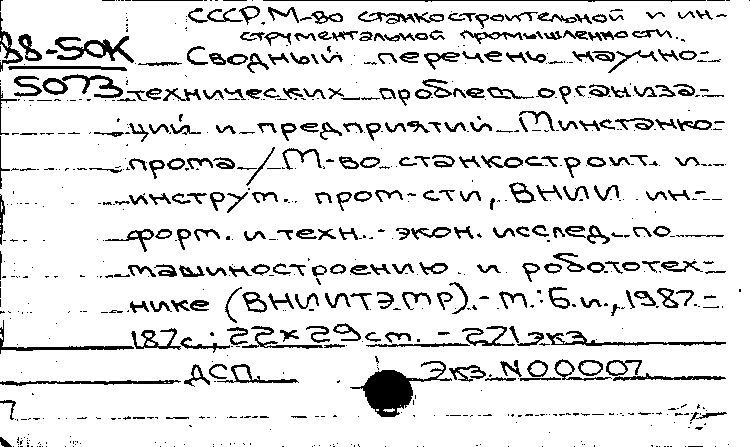 СССР. М-во станкостроительной и ин-
струментальной промышленности.
88-50К Сводный перечень научно-
5073 технических проблем организа-
ций и предприятий Минстанко-
прома / М-во станкостроит. и
инструм. пром-сти, ВНИИ ин-
форм. и техн.-экон. исслед. по
машиностроению и робототех-
нике (ВНИИТЭМР).- М.: Б.и., 1987.-
187с.; 22×29см. - 271 экз.
ДСП. Экз. N00007.